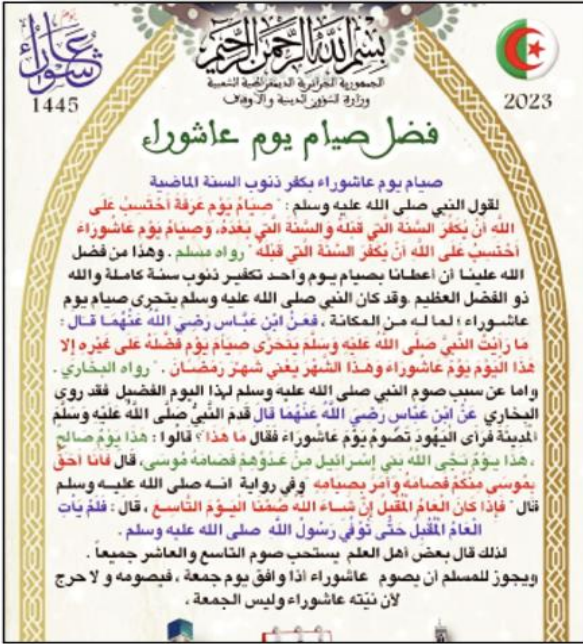 يوم عاشوراء
بسم الله الرحمن الرحيم
الجمهورية الجزائرية الديمقراطية الشعبية
وزارة الشؤون الدينية والأوقاف
1445
2023
فضل صيام يوم عاشوراء
صيام يوم عاشوراء يكفر ذنوب السنة الماضية
لقول النبي صلى الله عليه وسلم : " صِيَامُ يَوْمِ عَرَفَةَ أَحْتَسِبُ عَلَى
اللَّهِ أَنْ يُكَفِّرَ السَّنَةَ الَّتِي قَبْلَهُ وَالسَّنَةَ الَّتِي بَعْدَهُ، وَصِيَامُ يَوْمِ عَاشُورَاءَ
أَحْتَسِبُ عَلَى اللَّهِ أَنْ يُكَفِّرَ السَّنَةَ الَّتِي قَبْلَهُ " رواه مسلم . وهذا من فضل
الله علينا أن أعطانا بصيام يوم واحد تكفير ذنوب سنة كاملة والله
ذو الفضل العظيم .وقد كان النبي صلى الله عليه وسلم يتحرى صيام يوم
عاشوراء ؛ لما له من المكانة ، فعَنْ ابْنِ عَبَّاسٍ رَضِيَ اللَّهُ عَنْهُمَا قَالَ :
مَا رَأَيْتُ النَّبِيَّ صَلَّى اللَّهُ عَلَيْهِ وَسَلَّمَ يَتَحَرَّى صِيَامَ يَوْمٍ فَضَّلَهُ عَلَى غَيْرِهِ إلا
هَذَا الْيَوْمَ يَوْمَ عَاشُورَاءَ وَهَذَا الشَّهْرَ يَعْنِي شَهْرَ رَمَضَانَ . " رواه البخاري .
واما عن سبب صوم النبي صلى الله عليه وسلم لهذا اليوم الفضيل فقد روى
البخاري عَنْ ابْنِ عَبَّاسٍ رَضِيَ اللَّهُ عَنْهُمَا قَالَ قَدِمَ النَّبِيُّ صَلَّى اللَّهُ عَلَيْهِ وَسَلَّمَ
الْمَدِينَةَ فَرَأَى الْيَهُودَ تَصُومُ يَوْمَ عَاشُورَاءَ فَقَالَ مَا هَذَا ؟ قَالُوا : هَذَا يَوْمٌ صَالِحٌ
، هَذَا يَوْمُ نَجَّى اللَّهُ بَنِي إِسْرَائِيلَ مِنْ عَدُوِّهِمْ فَصَامَهُ مُوسَى، قَالَ فَأَنَا أَحَقُّ
بِمُوسَى مِنْكُمْ فَصَامَهُ وَأَمَرَ بِصِيَامِهِ "وفي رواية انه صلى الله عليه وسلم
قال " فَإِذَا كَانَ الْعَامُ الْمُقْبِلُ إِنْ شَاءَ اللَّهُ صُمْنَا الْيَوْمَ التَّاسِعَ ، قال : فَلَمْ يَأْتِ
الْعَامُ الْمُقْبِلُ حَتَّى تُوُفِّيَ رَسُولُ اللَّهِ صلى الله عليه وسلم .
لذلك قال بعض أهل العلم يستحب صوم التاسع والعاشر جميعاً .
ويجوز للمسلم ان يصوم عاشوراء اذا وافق يوم جمعة ، فيصومه و لا حرج
لأن نيّته عاشوراء وليس الجمعة ،